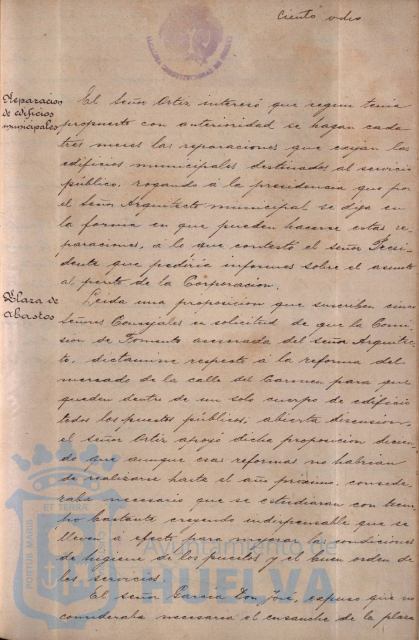 Ciento
Reparacion
de edificios
municipales
El Señor Ortiz interesó que segun tenia
propuesto con anterioridad se hagan cada
tres meses las reparaciones que exijan los
edificios municipales destinados al servicio
público, rogando á la presidencia que por
el Señor Arquitecto municipal se diga en
la forma en que pueden hacerse estas re-
paraciones, á lo que contestó el señor Presi-
dente que pediria informes sobre el asunto
al perito de la Corporacion.
Plaza de
Abastos
Leida una proposicion que suscriben cinco
Señores Concejales en solicitud de que la Comi-
sion de Fomento asesorada del señor Arquitec-
to, dictamine respecto á la reforma del
mercado de la calle del Carmen para que
queden dentro de un solo cuerpo de edificio
todos los puestos públicos, abierta discusion,
el Señor Ortiz apoyó dicha proposicion dicien-
do que aunque esas reformas no habrian
de realizarse hasta el año próximo, conside-
raba necesario que se estudiaran con tiem-
po bastante creyendo indispensable que se
lleven á efecto para mejorar las condiciones
de higiene de los puestos y el buen orden de
los servicios.
El Señor Garcia Don José, expuso que no
consideraba necesaria el ensanche de la plaza
PORTUS MARIS ET TERRAE
Ayuntamiento de
HUELVA